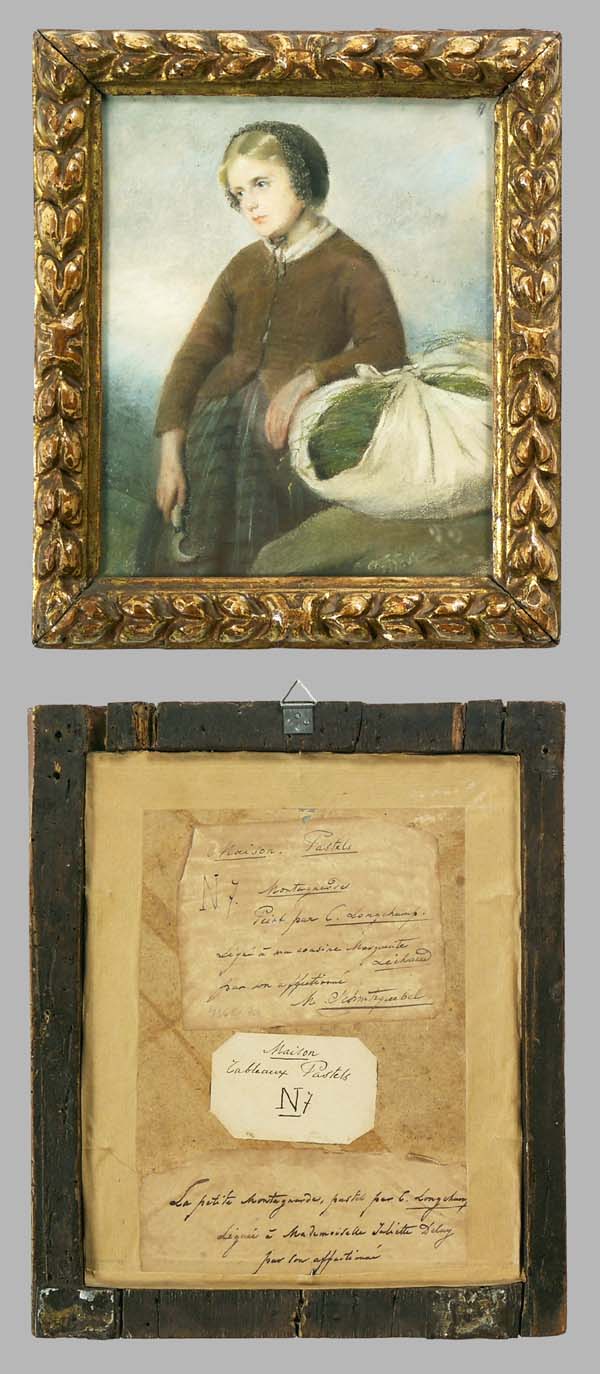 Maison. Pastels
N 7. Montagnarde
Peint par C. Longchamp.
Légué à ma cousine Marguerite
par son affectionné
M.
Maison
Tableaux Pastels
N 7
La petite Montagnarde, pastel par C. Longchamp
Léguée à Mademoiselle Juliette
par son affectionné